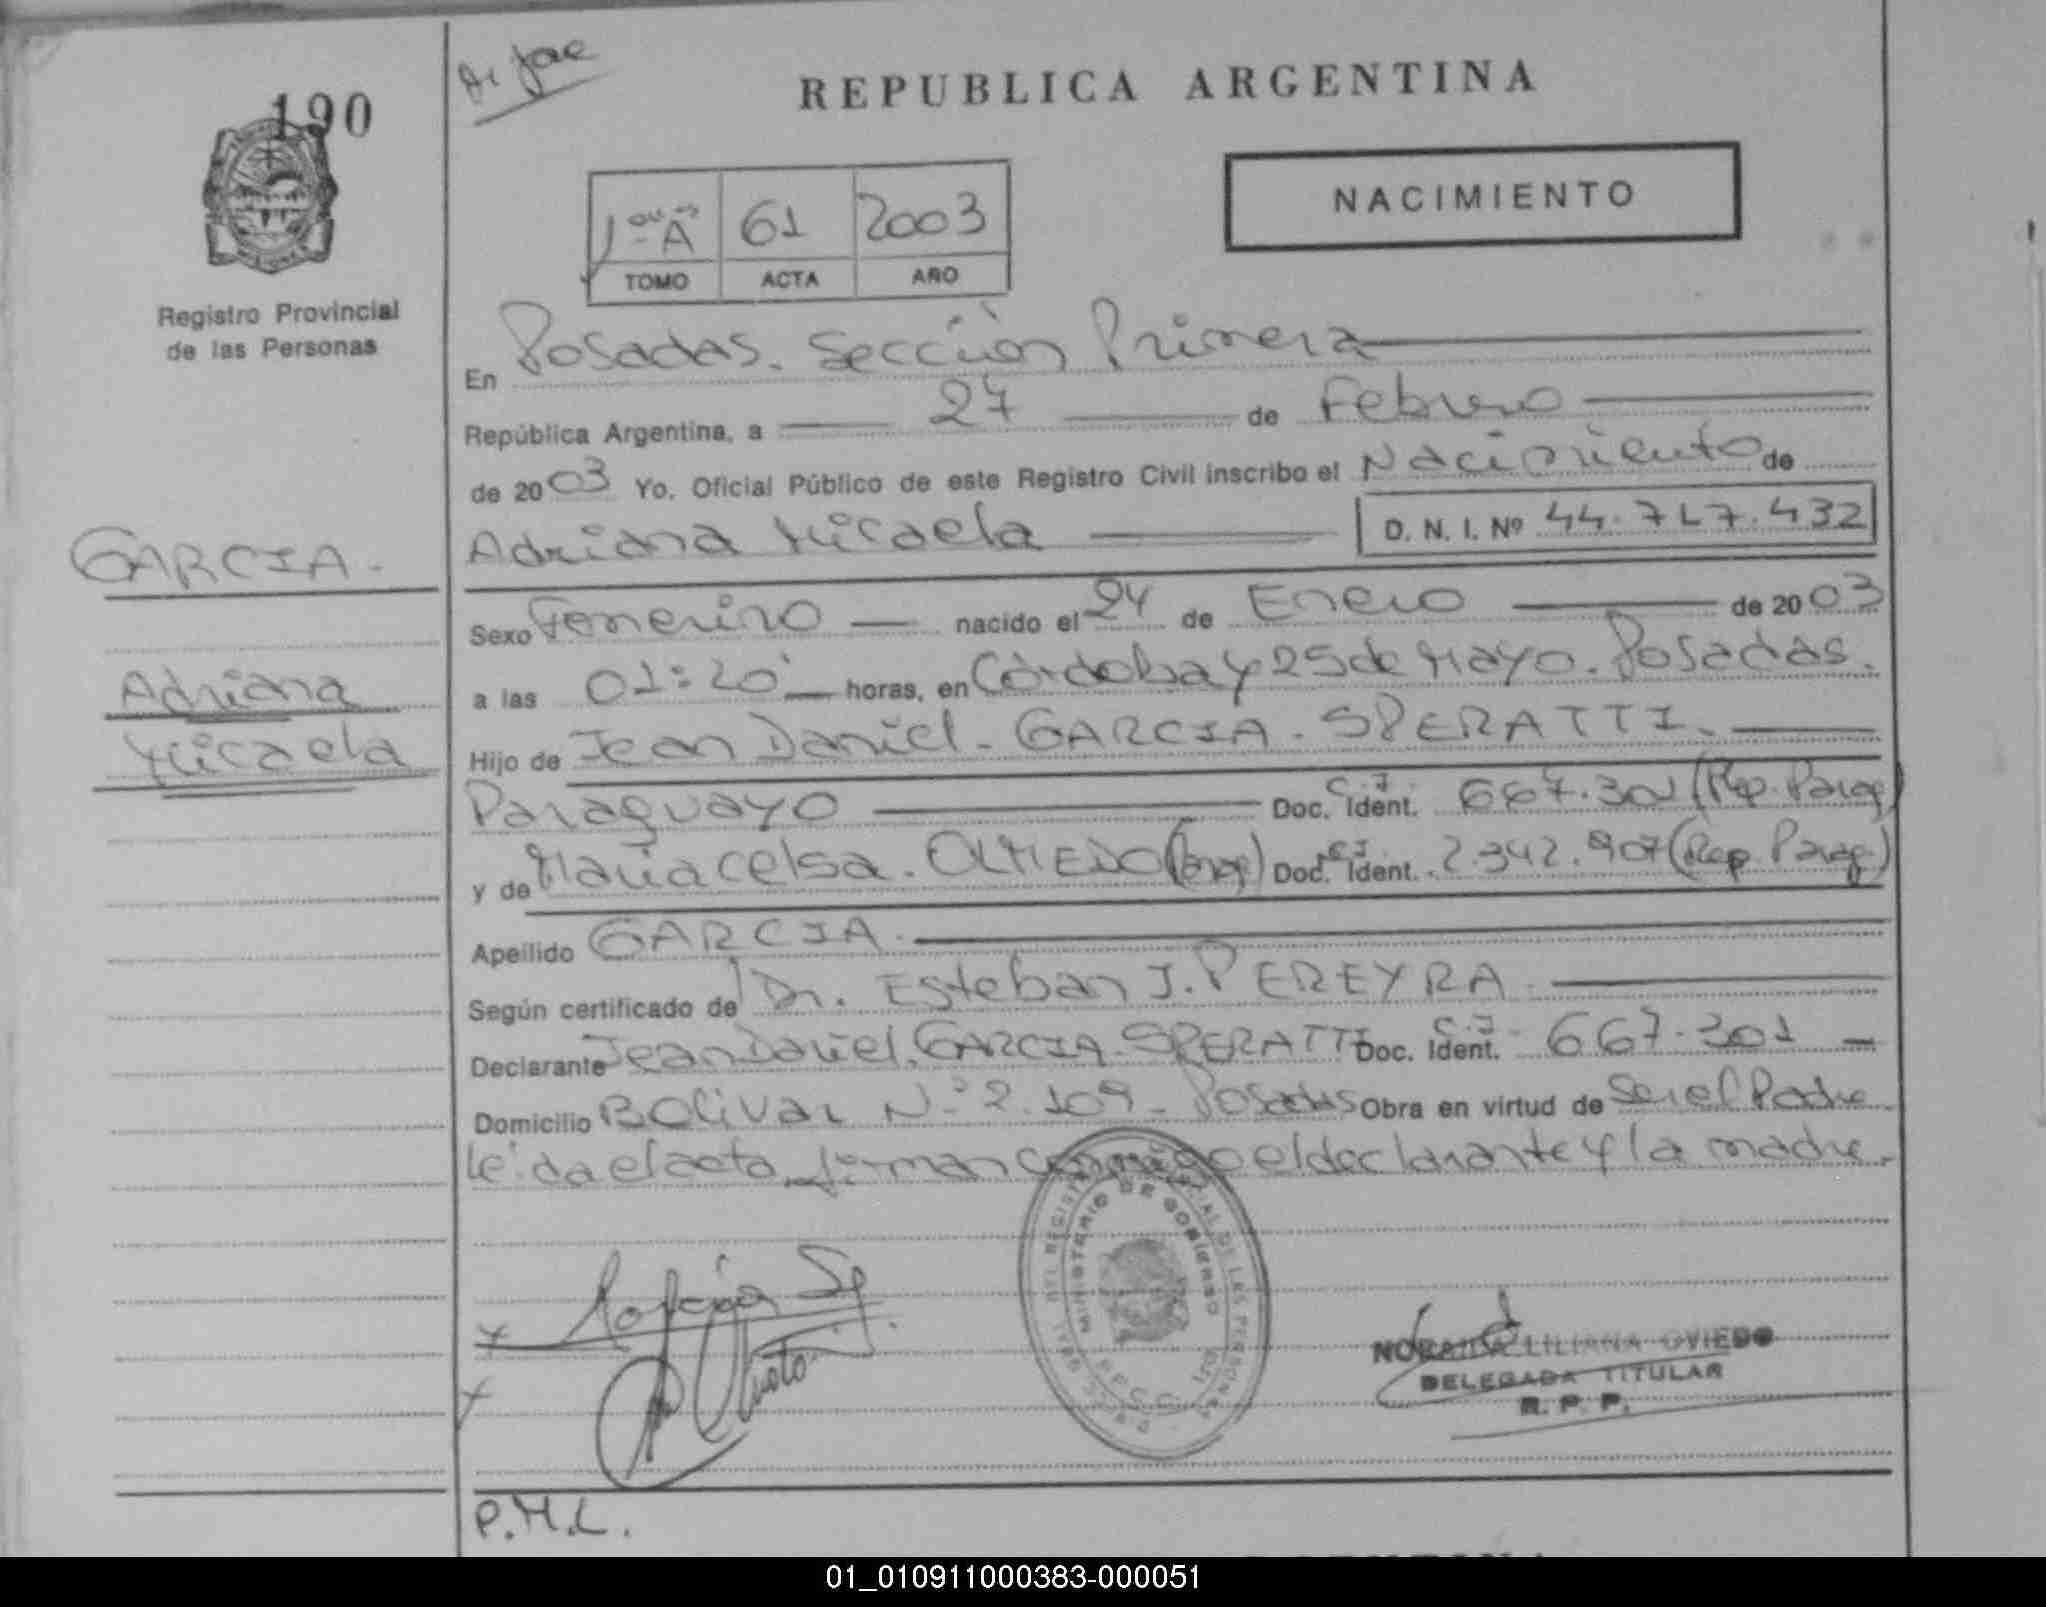 190
REPUBLICA ARGENTINA
NACIMIENTO
1º "A" 61 2003
TOMO ACTA AÑO
Registro Provincial
de las Personas
En Posadas. Sección Primera
República Argentina, a 27 de Febrero
de 2003 Yo. Oficial Público de este Registro Civil inscribo el Nacimiento de
Adriana Micaela D. N. I. Nº 44.747.432
GARCIA.
Adriana
Micaela
Sexo Femenino nacido el 24 de Enero de 2003
a las 01:20 horas, en Córdoba y 25 de Mayo. Posadas.
Hijo de Jean Daniel. GARCIA. SPERATTI.
Paraguayo Doc. Ident. C.I. 667.301 (Rep. Parag)
y de Maria Celsa. OLMEDO (Parag) Doc. Ident. C.I. 2.342.907 (Rep. Parag)
Apellido GARCIA.
Según certificado de Dr. Esteban J. PEREYRA.
Declarante Jean Daniel. GARCIA. SPERATTI Doc. Ident. C.I. 667.301
Domicilio Bolivar Nº 2.109 - Posadas Obra en virtud de Ser el Padre
Leida el acta firman conmigo el declarante y la madre.
MINISTERIO DE GOBIERNO
NORAIDA LILIANA OVIEDO
DELEGADA TITULAR
R. P. P.
P.M.L.
01_010911000383-000051